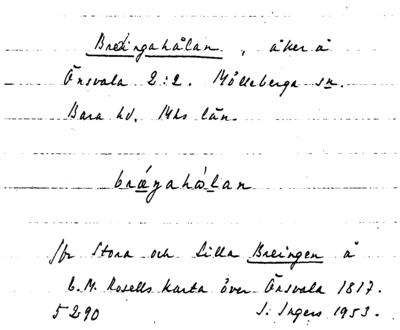 Breingahålan, åker å
Önsvala 2:2. Mölleberga sn.
Bara hd. Mhs län.
bræ̀ŋahɷ̀lan
Jfr Stora och Lilla Breingen å
C. M. Rosells karta över Önsvala 1817.
5290 I. Ingers 1953.